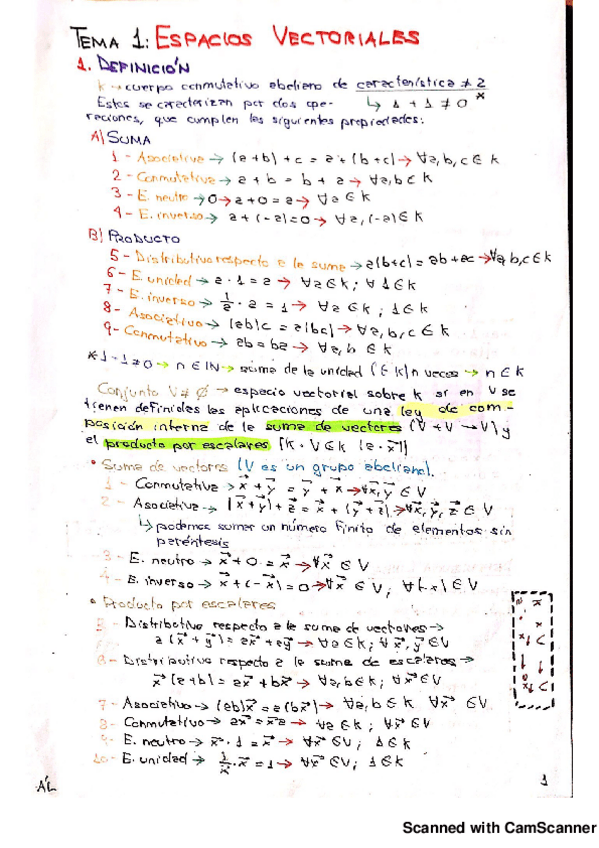 TEMA 1: ESPACIOS VECTORIALES
1. DEFINICIÓN
k → cuerpo conmutativo abeliano de característica ≠ 2
Estos se caracterizan por dos ope- ↳ 1 + 1 ≠ 0 *
raciones, que cumplen las siguientes propiedades:
A) SUMA
1 - Asociativa → (a+b) + c = a + (b+c) → ∀a,b,c ∈ k
2 - Conmutativa → a + b = b + a → ∀a,b ∈ k
3 - E. neutro → 0 → a + 0 = a → ∀a ∈ k
4 - E. inverso → a + (-a) = 0 → ∀a, (-a) ∈ k
B) PRODUCTO
5 - Distributiva respecto a la suma → a(b+c) = ab + ac → ∀a,b,c ∈ k
6 - E. unidad → a · 1 = a → ∀a ∈ k ; ∀ 1 ∈ k
7 - E. inverso → 1/a · a = 1 → ∀a ∈ k ; 1 ∈ k
8 - Asociativa → (ab)c = a(bc) → ∀a,b,c ∈ k
9 - Conmutativa → ab = ba → ∀a,b ∈ k
* 1 - 1 ≠ 0 → n ∈ IN → suma de la unidad (∈ k) n veces → n ∈ k
Conjunto V ≠ ∅ → espacio vectorial sobre k si en V se
tienen definidas las aplicaciones de una ley de com-
posición interna de la suma de vectores (V + V → V) y
el producto por escalares [k · V ∈ k (a · x⃗)]
• Suma de vectores (V es un grupo abeliano).
1 - Conmutativa → x⃗ + y⃗ = y⃗ + x⃗ → ∀x⃗, y⃗ ∈ V
2 - Asociativa → (x⃗ + y⃗) + z⃗ = x⃗ + (y⃗ + z⃗) → ∀x⃗, y⃗, z⃗ ∈ V
↳ podemos sumar un número finito de elementos sin
paréntesis
3 - E. neutro → x⃗ + 0 = x⃗ → ∀x⃗ ∈ V
4 - E. inverso → x⃗ + (-x⃗) = 0 → ∀x⃗ ∈ V, ∀(-x) ∈ V
• Producto por escalares
5 - Distributiva respecto a la suma de vectores →
a (x⃗ + y⃗) = ax⃗ + ay⃗ → ∀a ∈ k ; ∀x⃗, y⃗ ∈ V
6 - Distributiva respecto a la suma de escalares →
x⃗ (a + b) = ax⃗ + bx⃗ → ∀a,b ∈ k ; ∀x⃗ ∈ V
7 - Asociativa → (ab)x⃗ = a(bx⃗) → ∀a,b ∈ k ∀x⃗ ∈ V
8 - Conmutativa → ax⃗ = x⃗a → ∀a ∈ k ; ∀x⃗ ∈ V
9 - E. neutro → x⃗ · 1 = x⃗ → ∀x⃗ ∈ V ; 1 ∈ k
10 - E. unidad → 1/x⃗ · x⃗ = 1 → ∀x⃗ ∈ V ; 1 ∈ k
1
Scanned with CamScanner